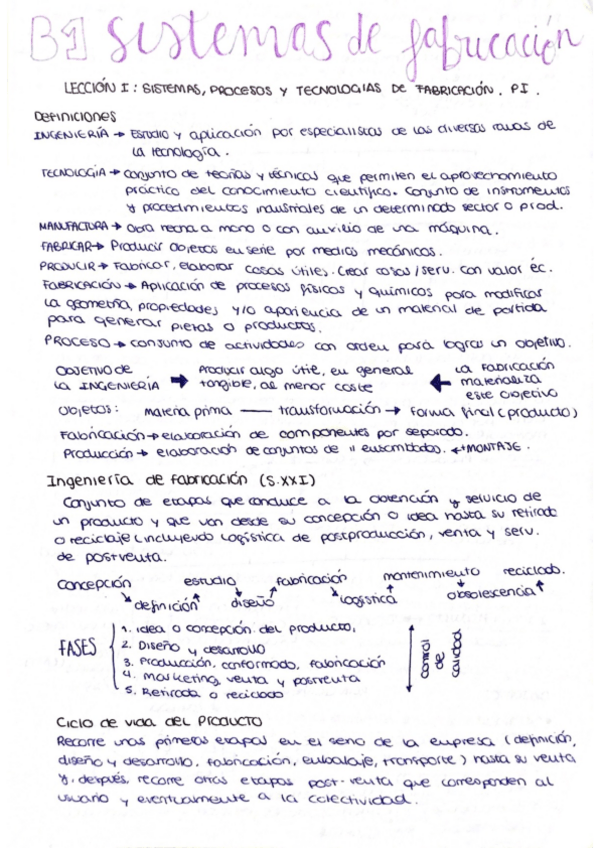 B1 Sistemas de fabricación
LECCIÓN I: SISTEMAS, PROCESOS Y TECNOLOGIAS DE FABRICACIÓN. PI.
Definiciones
INGENIERÍA → Estudio y aplicación por especialistas de las diversas ramas de
la tecnología.
TECNOLOGIA → conjunto de teorías y técnicas que permiten el aprovechamiento
práctico del conocimiento científico. Conjunto de instrumentos
y procedimientos industriales de un determinado sector o prod.
MANUFACTURA → Obra hecha a mano o con auxilio de una máquina.
FABRICAR → Producir objetos en serie por medios mecánicos.
PRODUCIR → Fabricar, elaborar cosas útiles. Crear cosas/serv. con valor éc.
FABRICACIÓN → Aplicación de procesos físicos y químicos para modificar
la geometría, propiedades y/o apariencia de un material de partida
para generar piezas o productos.
PROCESO → conjunto de actividades con orden para lograr un objetivo.
OBJETIVO DE la INGENIERÍA → Producir algo útil, en general tangible, al menor coste ← la FABRICACIÓN materializa este objetivo
Objetos: materia prima — transformación → forma final (producto)
Fabricación → elaboración de componentes por separado.
Producción → elaboración de conjuntos de " ensamblados. ↔ MONTAJE.
Ingeniería de fabricación (S.XXI)
Conjunto de etapas que conduce a la obtención y servicio de
un producto y que van desde su concepción o idea hasta su retirado
o reciclaje (incluyendo logística de postproducción, venta y serv.
de postventa.
concepción estudio fabricación mantenimiento reciclado.
definición diseño logística obsolescencia
FASES
1. idea o concepción del producto,
2. Diseño y desarrollo
3. Producción, conformado, fabricación
4. Marketing, venta y postventa
5. Retirada o reciclado
control de calidad
Ciclo de vida del PRODUCTO
Recorre unas primeras etapas en el seno de la empresa (definición,
diseño y desarrollo, fabricación, embalaje, transporte) hasta su venta
y, después, recorre otras etapas post-venta que corresponden al
usuario y eventualmente a la colectividad.